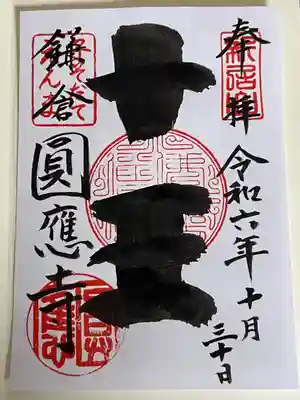 奉拝
令和六年十月
三十日
十王
鎌倉
圓應寺